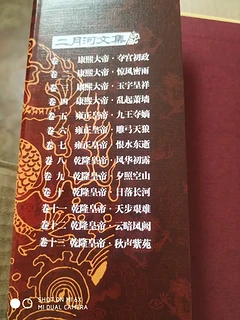 二月河文集
卷一 康熙大帝·夺宫初政
卷二 康熙大帝·惊风密雨
卷三 康熙大帝·玉宇呈祥
卷四 康熙大帝·乱起萧墙
卷五 雍正皇帝·九王夺嫡
卷六 雍正皇帝·雕弓天狼
卷七 雍正皇帝·恨水东逝
卷八 乾隆皇帝·风华初露
卷九 乾隆皇帝·夕照空山
卷十 乾隆皇帝·日落长河
卷十一 乾隆皇帝·天步艰难
卷十二 乾隆皇帝·云暗凤阙
卷十三 乾隆皇帝·秋声紫苑
SHOT ON MI
MI DUAL CAMERA